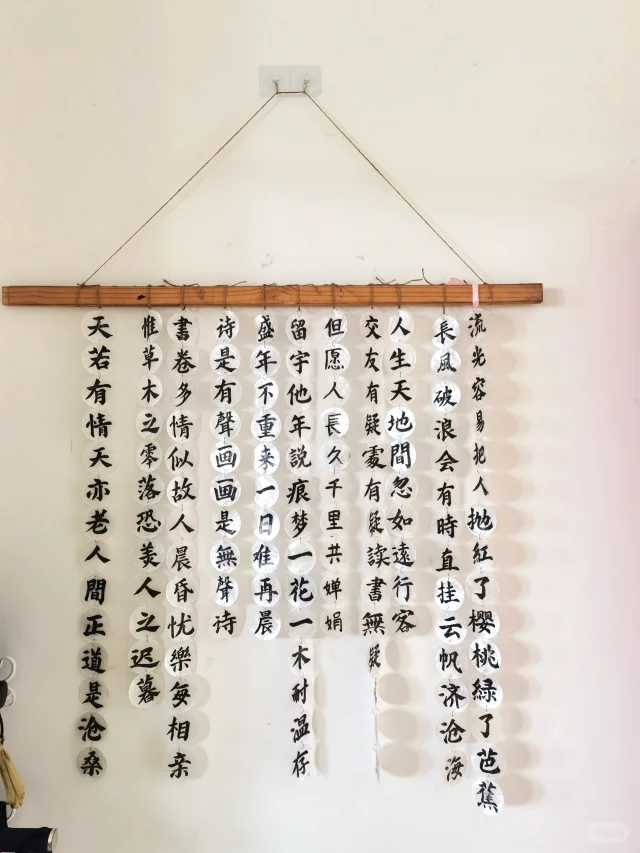 流光容易把人抛紅了樱桃緑了芭蕉
長風破浪会有時直挂云帆济沧海
人生天地間忽如遠行客
交友有疑處有疑读書無疑
但愿人長久千里共婵娟
留宇他年說痕梦一花一木耐温存
盛年不重来一日难再晨
诗是有聲画画是無聲诗
書卷多情似故人晨昏忧樂每相亲
惟草木之零落恐美人之迟暮
天若有情天亦老人間正道是沧桑